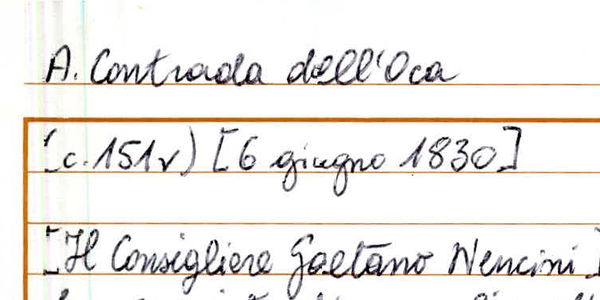 A. Contrada dell'Oca
[c.151v) [6 giugno 1830]
[Il Consigliere Gaetano Nencini]